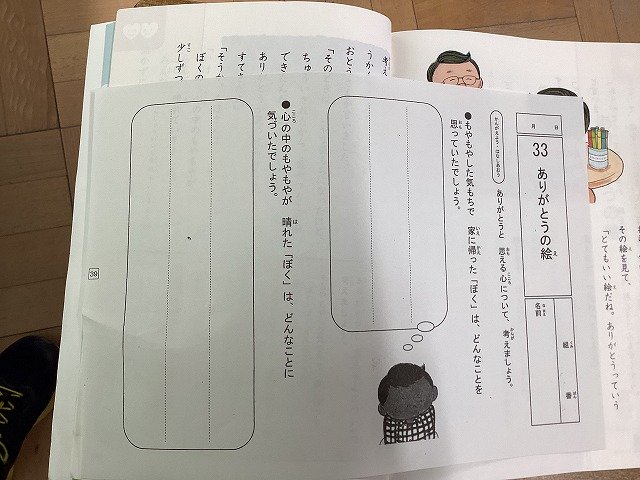 月 日
33 ありがとうの絵
名前
組 番
かんがえよう・はなしあおう
ありがとうと 思える心について、考えましょう。
●もやもやした気もちで 家に帰った「ぼく」は、どんなことを
思っていたでしょう。
●心の中のもやもやが 晴れた「ぼく」は、どんなことに
気づいたでしょう。
39
その絵を見て、
「とてもいい絵だね。ありがとうっていう
おとう
「その
ちゅ
でき
あり
すて
「そう
ぼくの
少しずつ